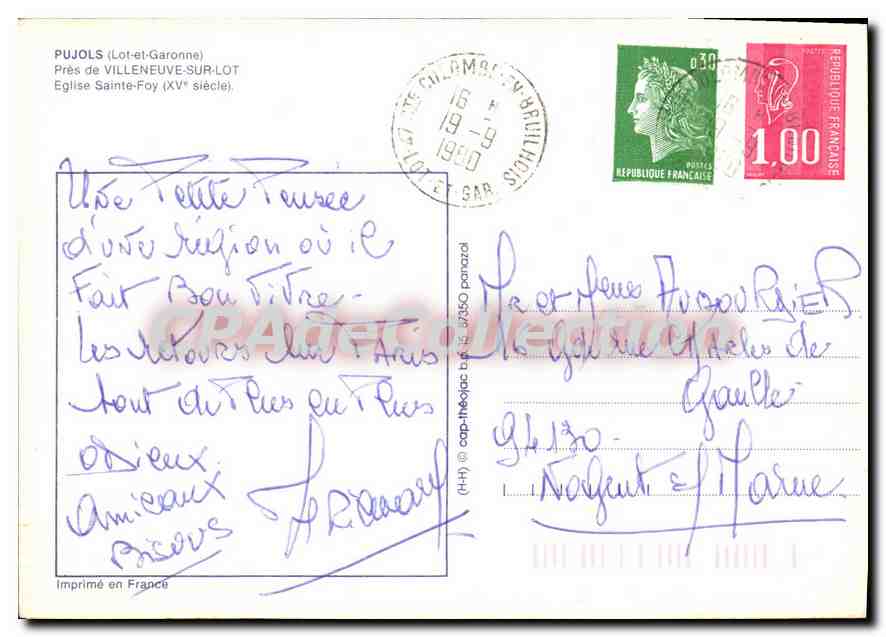 PUJOLS (Lot-et-Garonne)
Près de VILLENEUVE-SUR-LOT
Eglise Sainte-Foy (XVe siècle).
47 STE COLOMBE-EN-BRUILHOIS
16 H
19-9
1980
LOT-ET-GAR.
0,30
POSTES
REPUBLIQUE FRANÇAISE
POSTES
1,00
REPUBLIQUE FRANÇAISE
Une Petite Pensée
d'une Région où il
Fait Bon Vivre -
Les Retours sur Paris
sont de Plus en Plus
odieux.
Amicaux
Bisous
(H-H) © cap-théojac b.p. 15, 87350 panazol
Mr et Mme
16 Maréchal de
Gaulle
94130 -
Nogent s/ Marne
Imprimé en France
CPAdeCollection